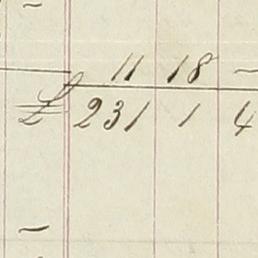 11 18 —
£ 231 1 4